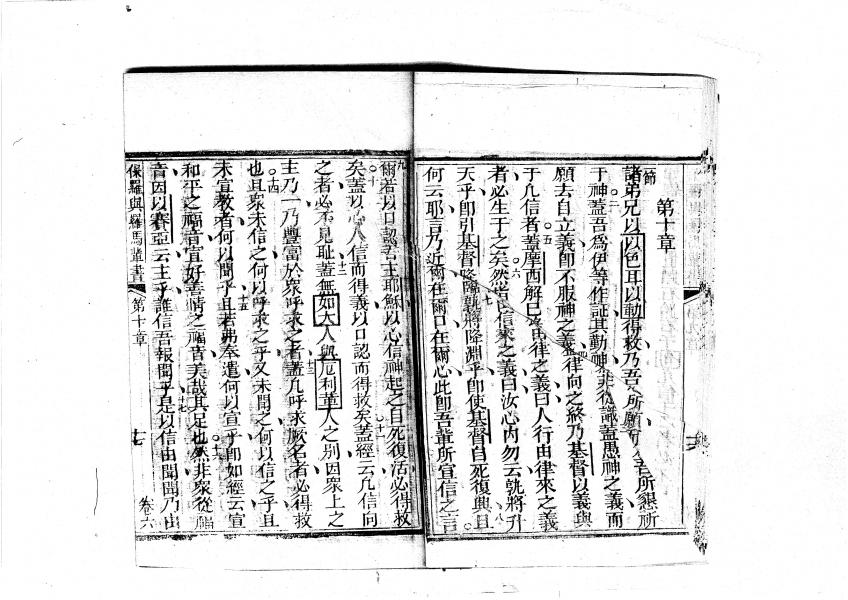 第十章
節
諸弟兄以以色耳以動得救乃吾人所願所懇所
于神蓋吾爲伊等作証其勤神非從識蓋愚神之義而
願去自立義卽不服神之義蓋律向之終乃基督以義與
于凡信者蓋摩西解曰由律之義曰人行由律來之義
者必生于之矣然由信來之義曰汝心內勿云孰將升
天乎卽引基督降孰將降淵乎卽使基督自死復興且
何云耶言乃近爾在爾口在爾心此卽吾輩所宣信之言
爾若以口認吾主耶穌以心信神起之自死復活必得救
矣蓋以心人信而得義以口認而得救矣蓋經云凡信向
之者必不見耻蓋無如大人與厄利革人之别因衆上之
主乃一乃豐富於衆呼求之者蓋凡呼求厥名者必得救
也且衆未信之何以呼求之乎又未聞之何以信之乎且
未宣敎者何以聞乎且若弗奉遣何以宣乎卽如經云宣
和平之福音宣好善情之福音美哉其足也然非衆從福
音因以賽亞云主乎誰信吾報聞乎是以信由聞聞乃由
保羅與羅馬輩書 第十章 卷六